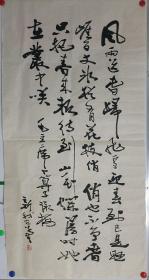 風雨送春歸飛雪迎春到已是懸
崖百丈冰猶有花枝俏俏也不争春
只把春來報待到山花爛漫時她
在叢中笑 毛主席卜算子詠梅